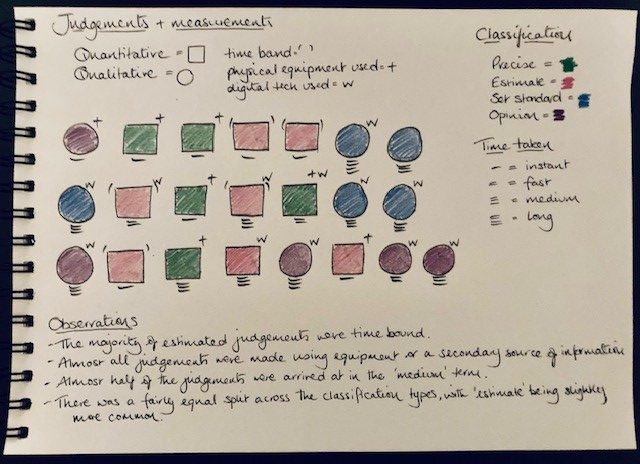 Judgements + measurements
Quantitative = □ time band = ( )
Qualitative = ○ physical equipment used = +
digital tech used = w
Classification
Precise =
Estimate =
Set standard =
Opinion =
Time taken
- = instant
= = fast
≡ = medium
= long
+ + + w
w w w +w w w
w + w w + w w
Observations
- The majority of estimated judgements were time bound.
- Almost all judgements were made using equipment or a secondary source of information
- Almost half of the judgements were arrived at in the 'medium' term.
- There was a fairly equal split across the classification types, with 'estimate' being slightly
more common.